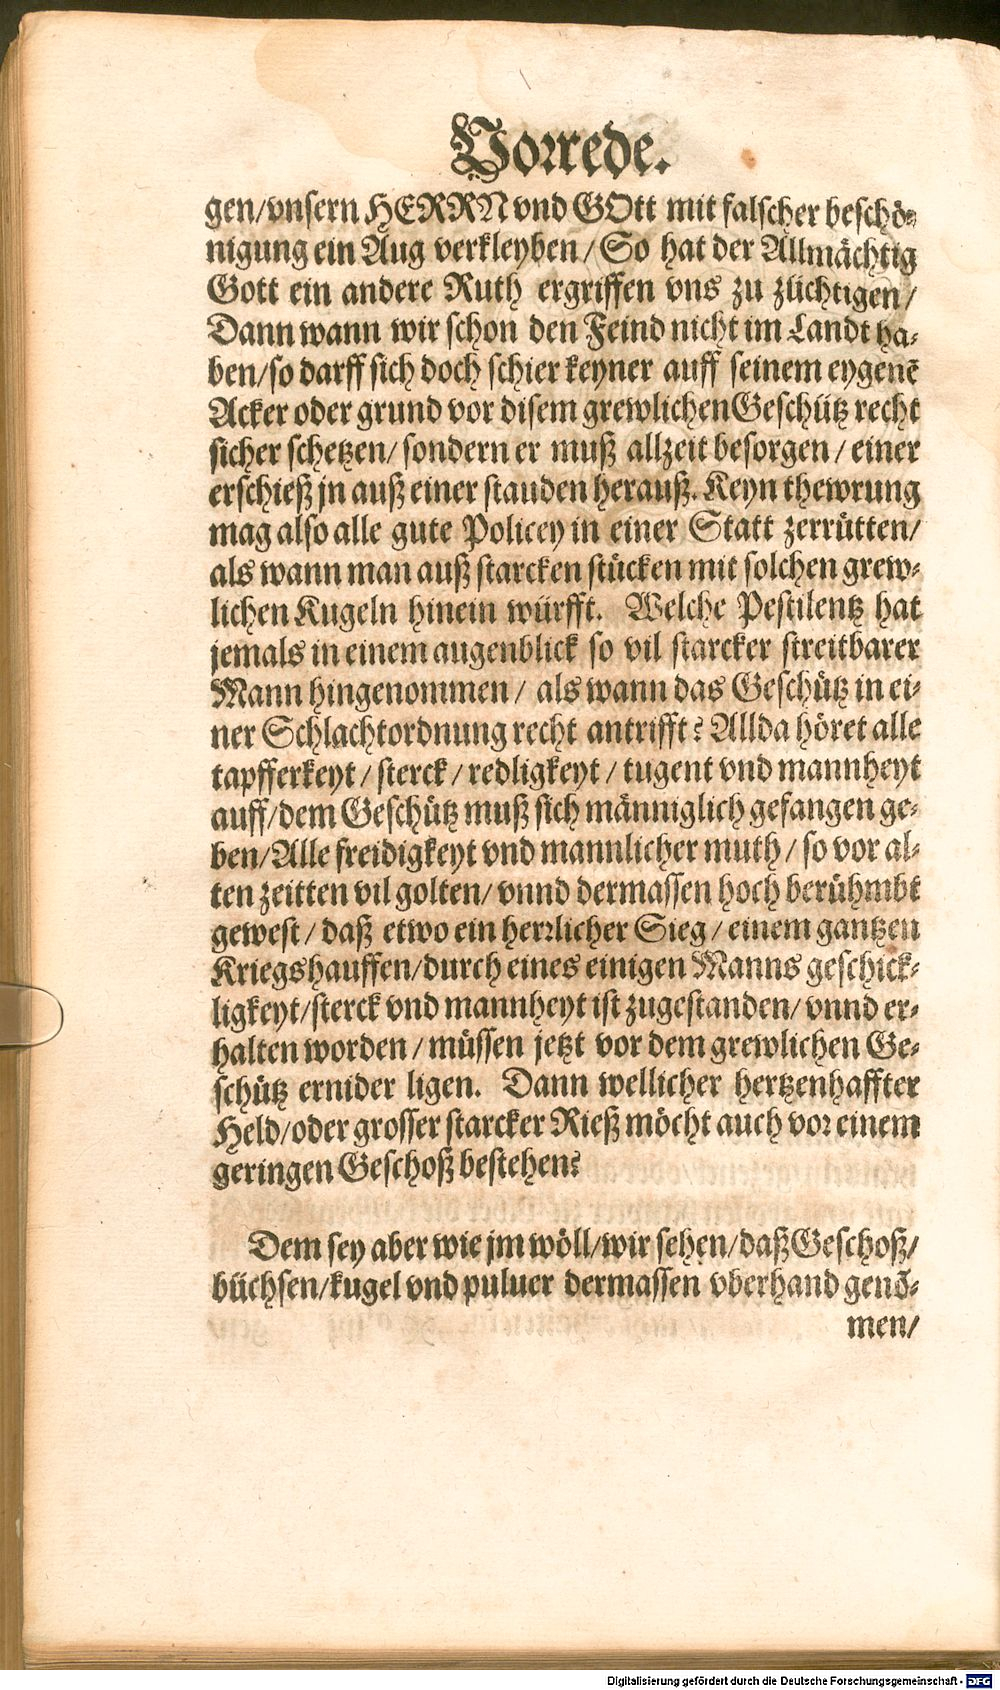 Vorrede.
gen/vnsern HERRN vnd GOtt mit falscher beschö-
nigung ein Aug verkleyben/So hat der Allmächtig
Gott ein andere Ruth ergriffen vns zu züchtigen/
Dann wann wir schon den Feind nicht im Landt ha-
ben/so darff sich doch schier keyner auff seinem eygenē
Acker oder grund vor disem grewlichen Geschütz recht
sicher schetzen/sondern er muß allzeit besorgen/einer
erschieß jn auß einer stauden herauß. Keyn thewrung
mag also alle gute Policey in einer Statt zerrütten/
als wann man auß starcken stücken mit solchen grew-
lichen Kugeln hinein würfft. Welche Pestilentz hat
jemals in einem augenblick so vil starcker streitbarer
Mann hingenommen/als wann das Geschütz in ei-
ner Schlachtordnung recht antrifft? Allda höret alle
tapfferkeyt/sterck/redligkeyt/tugent vnd mannheyt
auff/dem Geschütz muß sich männiglich gefangen ge-
ben/Alle freidigkeyt vnd mannlicher muth/so vor al-
ten zeitten vil golten/vnnd dermassen hoch berühmbt
gewest/daß etwo ein herrlicher Sieg/einem gantzen
Kriegshauffen/durch eines einigen Manns geschick-
ligkeyt/sterck vnd mannheyt ist zugestanden/vnnd er-
halten worden/müssen jetzt vor dem grewlichen Ge-
schütz ernider ligen. Dann wellicher hertzenhaffter
Held/oder grosser starcker Rieß möcht auch vor einem
geringen Geschoß bestehen?
Dem sey aber wie jm wöll/wir sehen/daß Geschoß/
büchsen/kugel vnd puluer dermassen vberhand genō-
men/
Digitalisierung gefördert durch die Deutsche Forschungsgemeinschaft - DFG